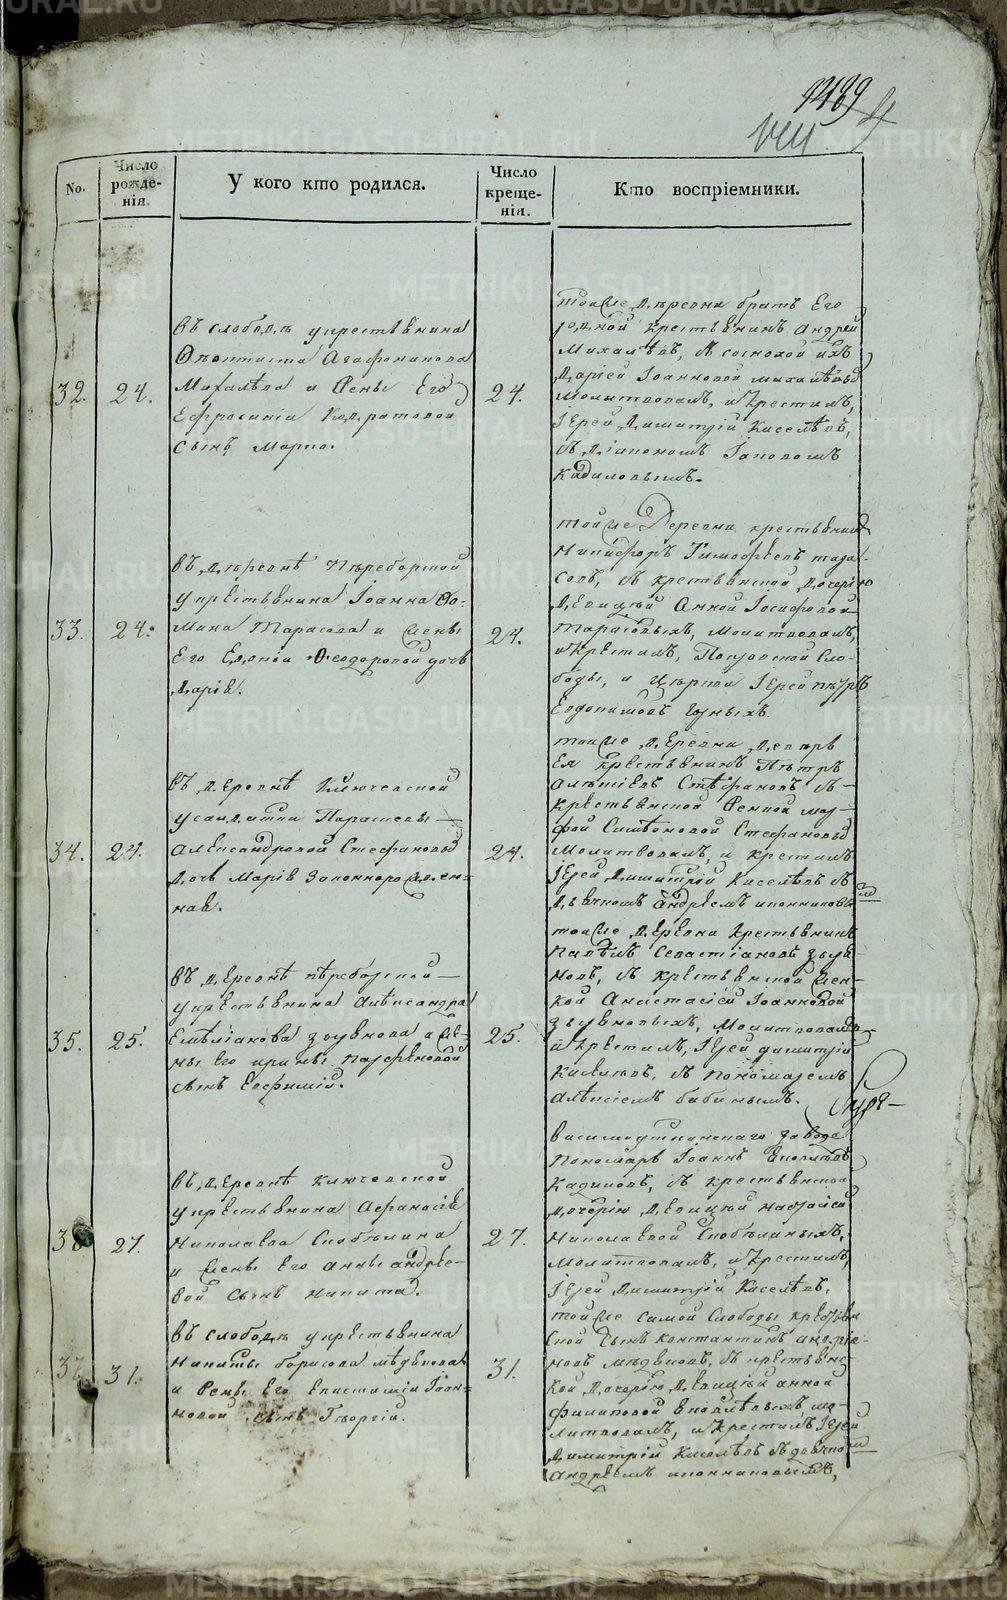 1789
No.
Число рожде-нія.
У кого кто родился.
Число креще-нія.
Кто воспріемники.
32.
24.
въ слободѣ у крестьянина
Агафонникова
Михалѣва и жены Его
Ефросиніи Кодратовой
сынъ Марко.
24.
тоиже деревни братъ Его
родной крестьянинъ Андрей
Михалѣвъ, съ снохой ихъ
Даріей Іоанновой михалѣвы
Молитвовалъ, и Крестилъ,
Іерей Димитрій Киселѣвъ,
съ Діакономъ Іаковомъ
Кадиловымъ.
33.
24.
въ деревнѣ Переборской
у крестьянина Іоанна Фо-
мина Тарасова и жены
Его Евдокіи Ѳеодоровой дочь
Дарія.
24.
тойже Деревни крестьянинъ
Никифоръ Тимофѣевъ тара-
совъ, съ крестьянской дочерію
Дѣвицѣй Анной Іосифовой
Тарасовыхъ, молитвовалъ,
и Крестилъ, Покровской Сло-
боды, и Церкви Іерей петръ
Евдокимовъ
34.
24.
въ деревнѣ Ключевской
у солдатки Парасковьи
Александровой Стефановой
дочь Марія Законнорожден-
ная.
24.
тоиже деревни деверь
Ея крестьянинъ Пѣтръ
Алексіевъ Стефановъ съ
крестьянской женкой мар-
фой Симѣоновой Стефановой
Молитвовалъ, и крестилъ
Іерей Димитрій Киселѣвъ съ
дьячкомъ Андреемъ иконниковы
мъ
35.
25.
въ деревнѣ переборской
у крестьянина Александра
Емѣліанова зуева и же-
ны Его ирины парфеновой
сынъ Евфимій.
25.
тоиже деревни Крестьянинъ
Павелъ Севастіановъ
новъ, съ крестьянской жен-
кой Анастасіей Іоанновой
Молитвовалъ
и Крестилъ, Іерей димитрій
Киселевъ, съ пономаремъ
алѣксіемъ бабинымъ.
36
27.
въ деревнѣ Ключевской
у крестьянина Афанасія
Николаева Скобѣлина
и жены Его анны андре-
вой сынъ никита.
27.
завода
Пономарь Іоаннъ
Кадиловъ, съ крестьянской
дочерію дѣвицѣй настасіей
Николаевой Скобѣлиныхъ,
молитвовалъ, и крестилъ,
Іерей Димитрій Киселѣвъ.
37.
31.
въ слободѣ у крестьянина
Никиты борисова мѣдвѣдева
и жены Его Епистиміи Іоан-
новой сынъ Георгій.
31.
тойже самой Слободы крестьян
ской сынъ константинъ андріа-
новъ мѣдвѣдевъ, съ крестьянс-
кой дочерію Дѣвицѣй анной
филиповой мо-
литвовалъ, и крестилъ Іерей
Димитрій Киселѣвъ съ дьячкомъ
андреемъ иконниковымъ,
METRIKI.GASO-URAL.RU